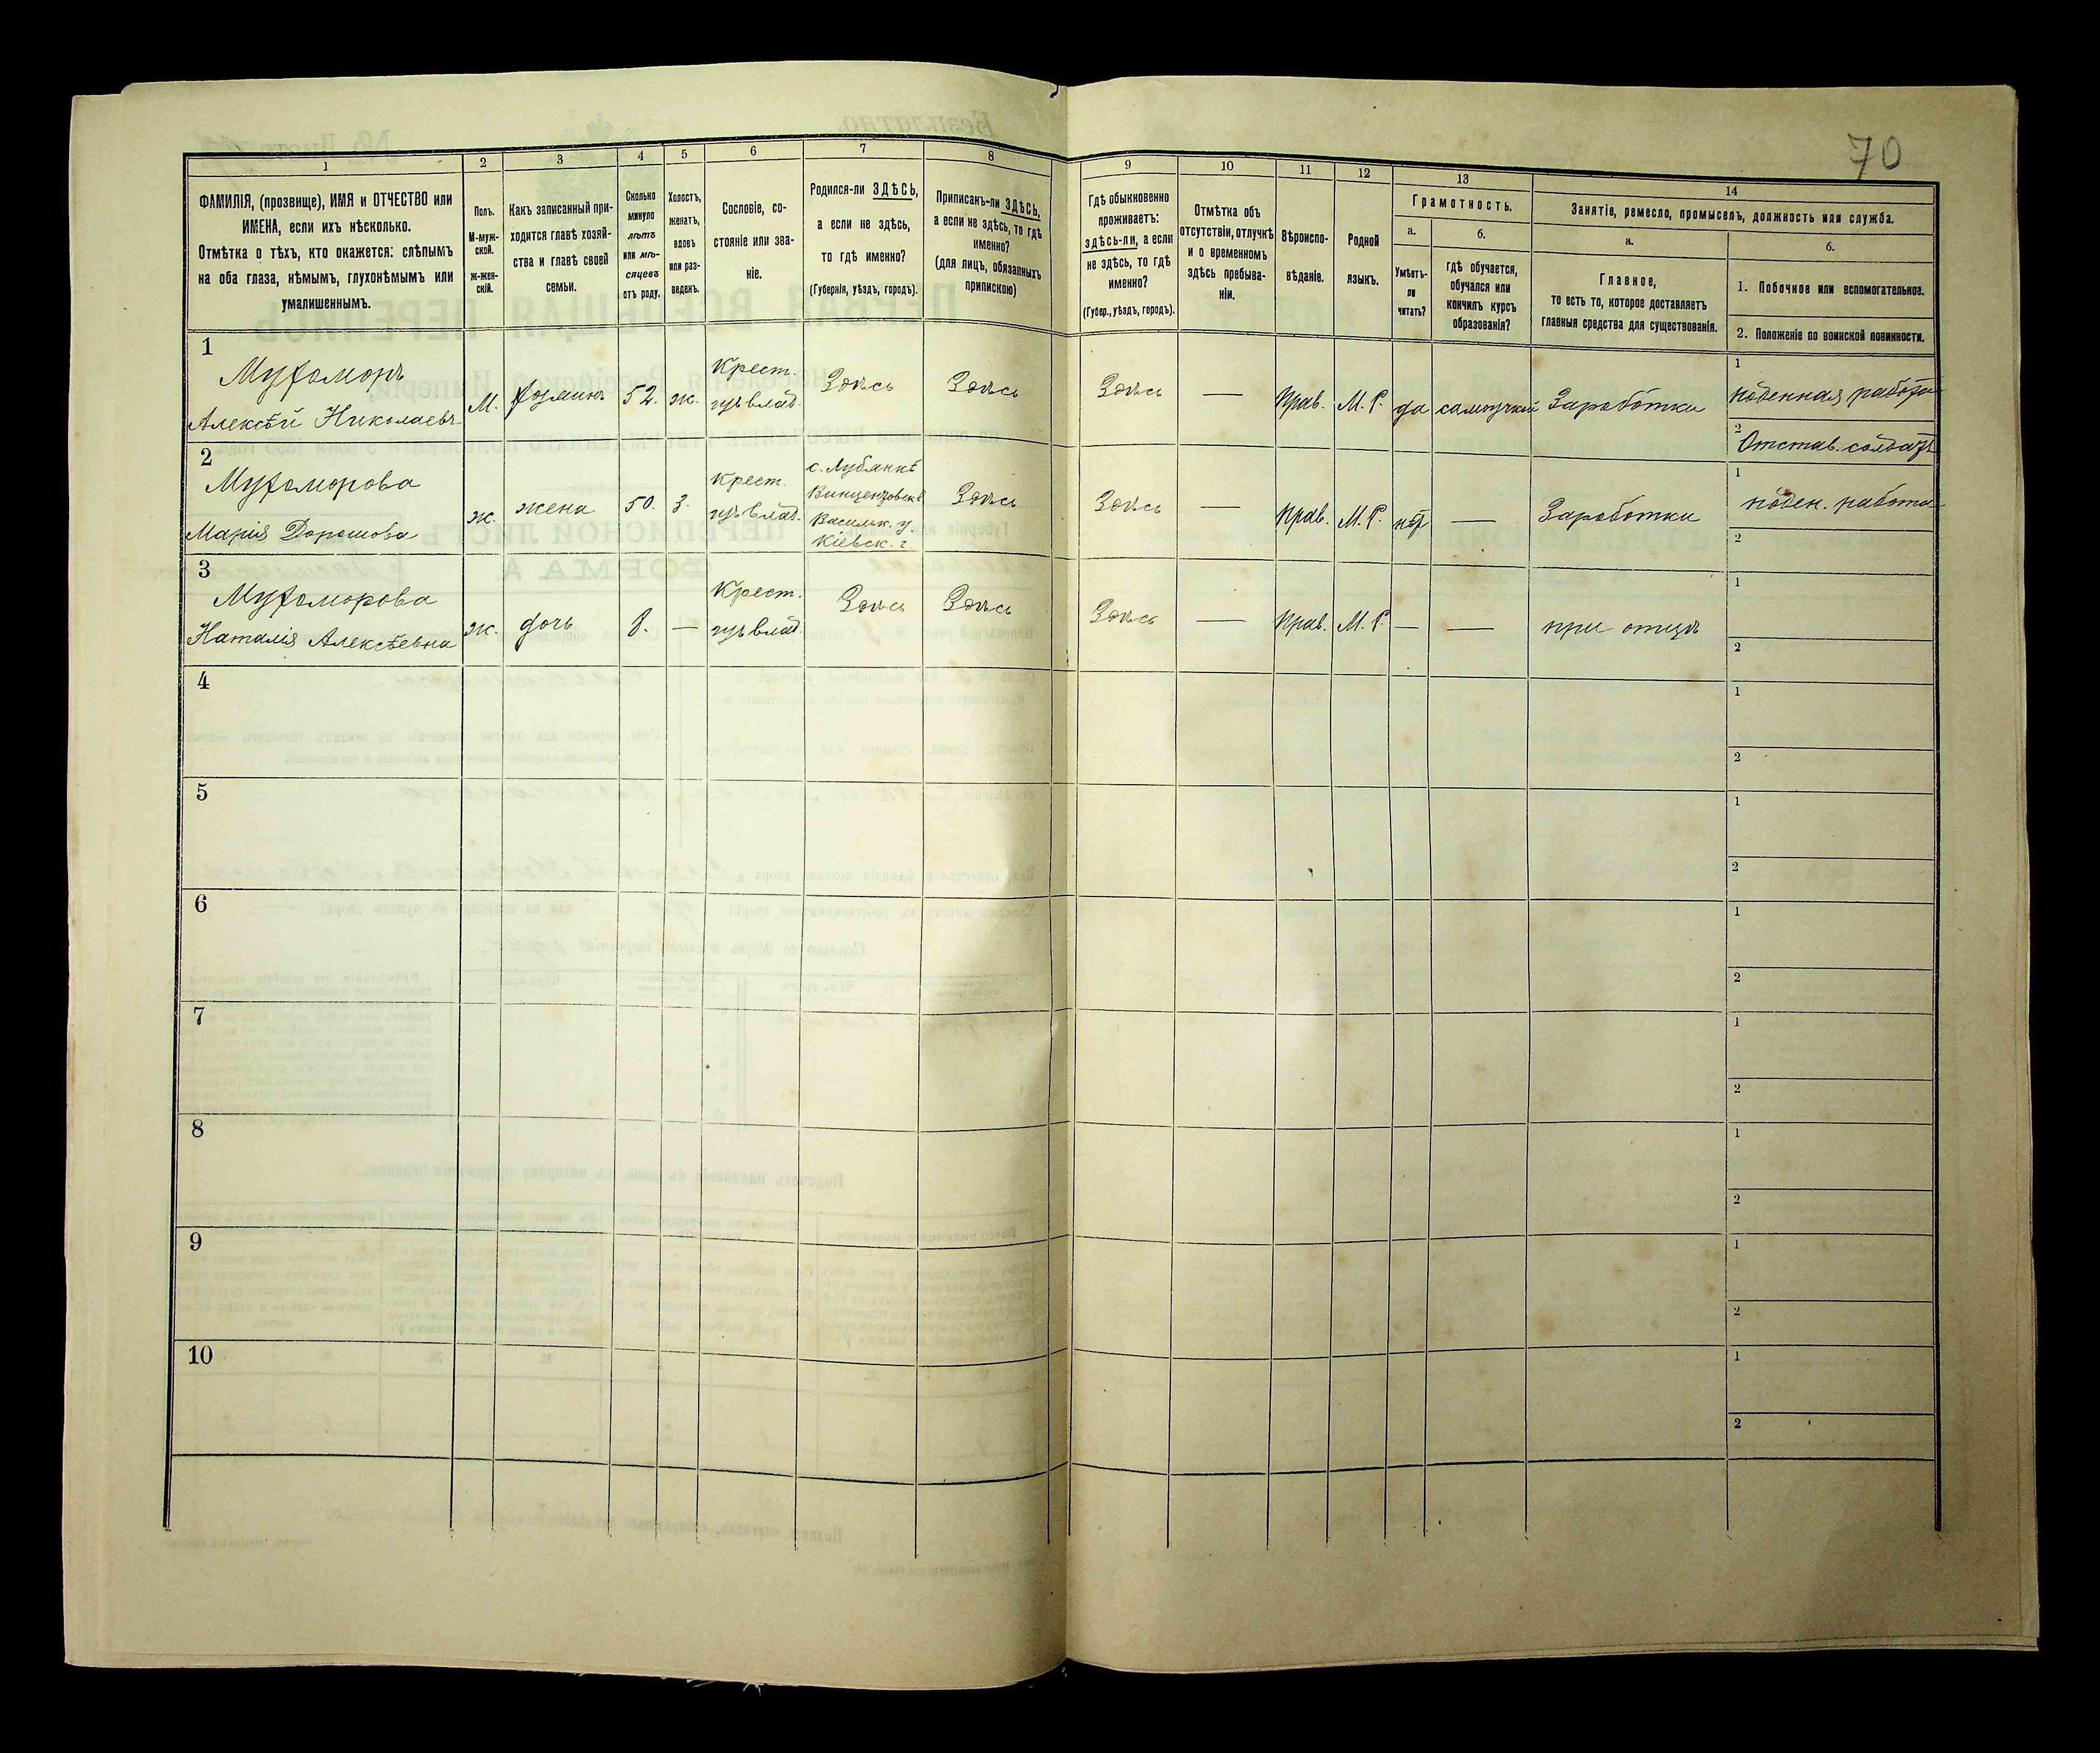 70
1
2
3
4
5
6
7
8
9
10
11
12
13
14
ФАМИЛІЯ, (прозвище), ИМЯ и ОТЧЕСТВО или
ИМЕНА, если ихъ нѣсколько.
Отмѣтка о тѣхъ, кто окажется: слѣпымъ
на оба глаза, нѣмымъ, глухонѣмымъ или
умалишеннымъ.
Полъ.
М-муж-
ской.
ж-жен-
скій.
Какъ записанный при-
ходится главѣ хозяй-
ства и главѣ своей
семьи.
Сколько
минуло
лѣтъ
или мѣ-
сяцевъ
отъ роду.
Холостъ,
женатъ,
вдовъ
или раз-
веденъ.
Сословіе, со-
стояніе или зва-
ніе.
Родился-ли ЗДѢСЬ,
а если не здѣсь,
то гдѣ именно?
(Губернія, уѣздъ, городъ).
Приписанъ-ли ЗДѢСЬ,
а если не здѣсь, то гдѣ
именно?
(для лицъ, обязанныхъ
припискою)
Гдѣ обыкновенно
проживаетъ:
здѣсь-ли, а если
не здѣсь, то гдѣ
именно?
(Губер., уѣздъ, городъ).
Отмѣтка объ
отсутствіи, отлучкѣ
и о временномъ
здѣсь пребыва-
ніи.
Вѣроиспо-
вѣданіе.
Родной
языкъ.
Грамотность.
а.
Умѣетъ-
ли
читать?
б.
гдѣ обучается,
обучался или
кончилъ курсъ
образованія?
Занятіе, ремесло, промыселъ, должность или служба.
а.
Главное,
то есть то, которое доставляетъ
главныя средства для существованія.
б.
1. Побочное или вспомогательное.
2. Положеніе по воинской повинности.
1
Мухоморъ
Алексѣй Николаевъ
М.
хозяинъ
52.
ж.
Крест.
Здѣсь
Здѣсь
Здѣсь
—
Прав.
М. Р.
да
самоучкой
Заработки
1
поденная работа
2
Отстав. солдатъ
2
Мухоморова
Марія Дорошова
ж.
жена
50.
З.
Крест.
Васильк. у.
Кіевск. г.
Здѣсь
Здѣсь
—
Прав.
М. Р.
нѣт
—
Заработки
1
поден. работа
2
3
Мухоморова
Наталія Алексѣевна
ж.
дочь
8.
—
Крест.
Здѣсь
Здѣсь
Здѣсь
—
Прав.
М. Р.
—
—
при отцѣ
1
2
4
1
2
5
1
2
6
1
2
7
1
2
8
1
2
9
1
2
10
1
2